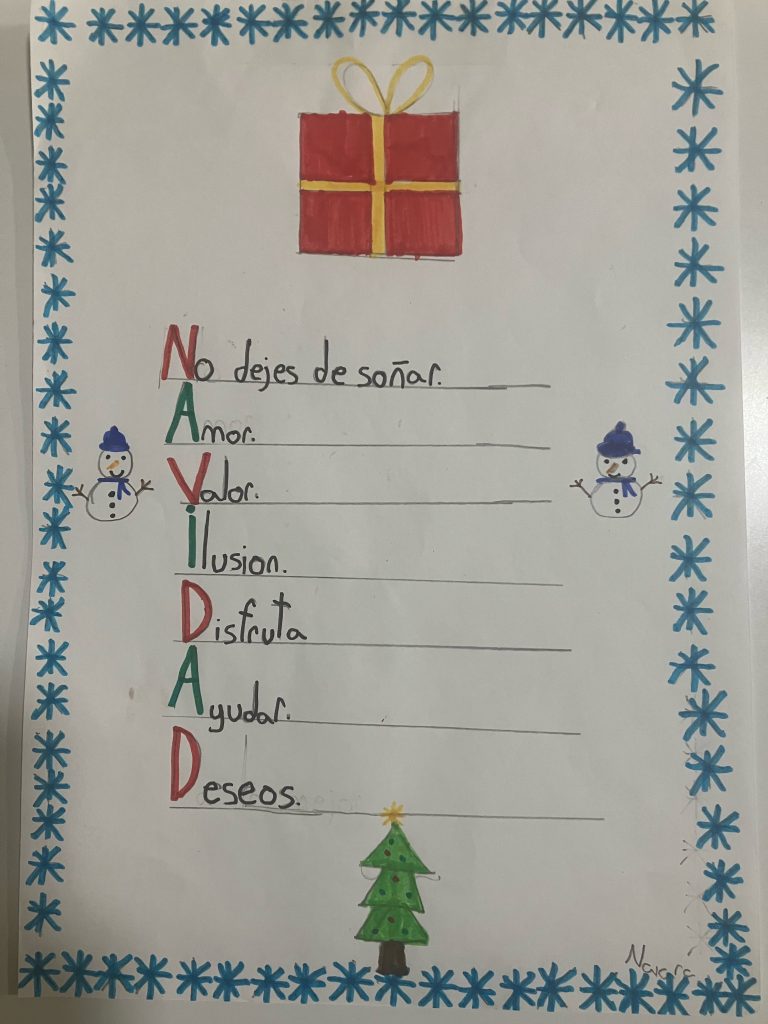 No dejes de soñar.
Amor.
Valor.
ilusion.
Disfruta
Ayudar.
Deseos.